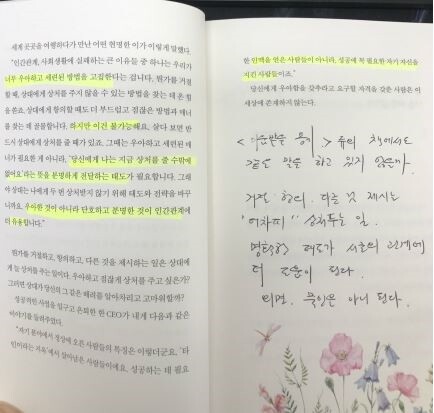 세계 곳곳을 여행하다가 만난 어떤 현명한 이가 이렇게 말했다.
“인간관계, 사회생활에 실패하는 큰 이유들 중 하나는 우리가
너무 우아하고 세련된 방법을 고집한다는 겁니다. 뭔가를 거절
할 때, 상대에게 상처를 주지 않을 수 있는 방법을 찾는 데 온 힘
을 쏟죠. 상대에게 항의할 때도 더 부드럽고 점잖은 방법과 매너
를 찾는 데 골몰합니다. 하지만 이건 불가능해요. 살다 보면 반드
시 상대에게 상처를 줄 때가 있죠. 그때는 우아하고 세련된 매
너가 필요한 게 아니라, ‘당신에게 나는 지금 상처를 줄 수밖에
없어요’라는 뜻을 분명하게 전달하는 태도가 필요합니다. 그래
야 상대는 나에게 두 번 상처받지 않기 위해 태도와 전략을 바꾸
니까요. 우아한 것이 아니라 단호하고 분명한 것이 인간관계에
더 유용합니다.”
뭔가를 거절하고, 항의하고, 다른 것을 제시하는 일은 상대에
게 늘 상처를 주는 일이다. 우아하고 점잖게 상처를 주고 싶은가?
그러면 상대가 당신의 그 같은 배려를 알아차리고 고마워할까?
성공적인 사업을 일구고 은퇴한 한 CEO가 내게 다음과 같은
이야기를 들려주었다.
“자기 분야에서 정상에 오른 사람들의 특징은 이렇더군요. ‘타
인이라는 지옥’에서 살아남은 사람들이에요. 성공하는 데 필요
한 인맥을 얻은 사람들이 아니라, 성공에 꼭 필요한 자기 자신을
지킨 사람들이죠.”
당신에게 우아함을 갖추라고 요구할 자격을 갖춘 사람은 이
세상에 존재하지 않는다.
<미움받을 용기> 류의 책에서도
같은 말을 하고 있지 않은가.
거절, 항의, 다른 것 제시는
“어차피” 상처주는 일.
명확한 태도가 서로의 관계에
더 도움이 된다.
되면, 묵인은 아니 된다.